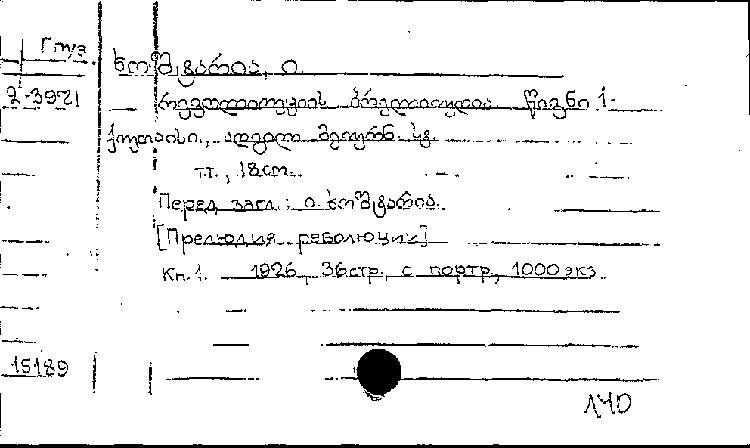 Груз.
ხოშტარია, ი.
2-3921
რევოლიუციის პრელიუდია წიგნი 1-
ქუთაისი, ადგილ. მეურნ. სტ.
т.т., 18 см.
Перед загл.: ი. ხოშტარია.
[Прелюдия революции]
Кн. 1. 1926, 36 стр., с портр, 1000 экз.
15189
140